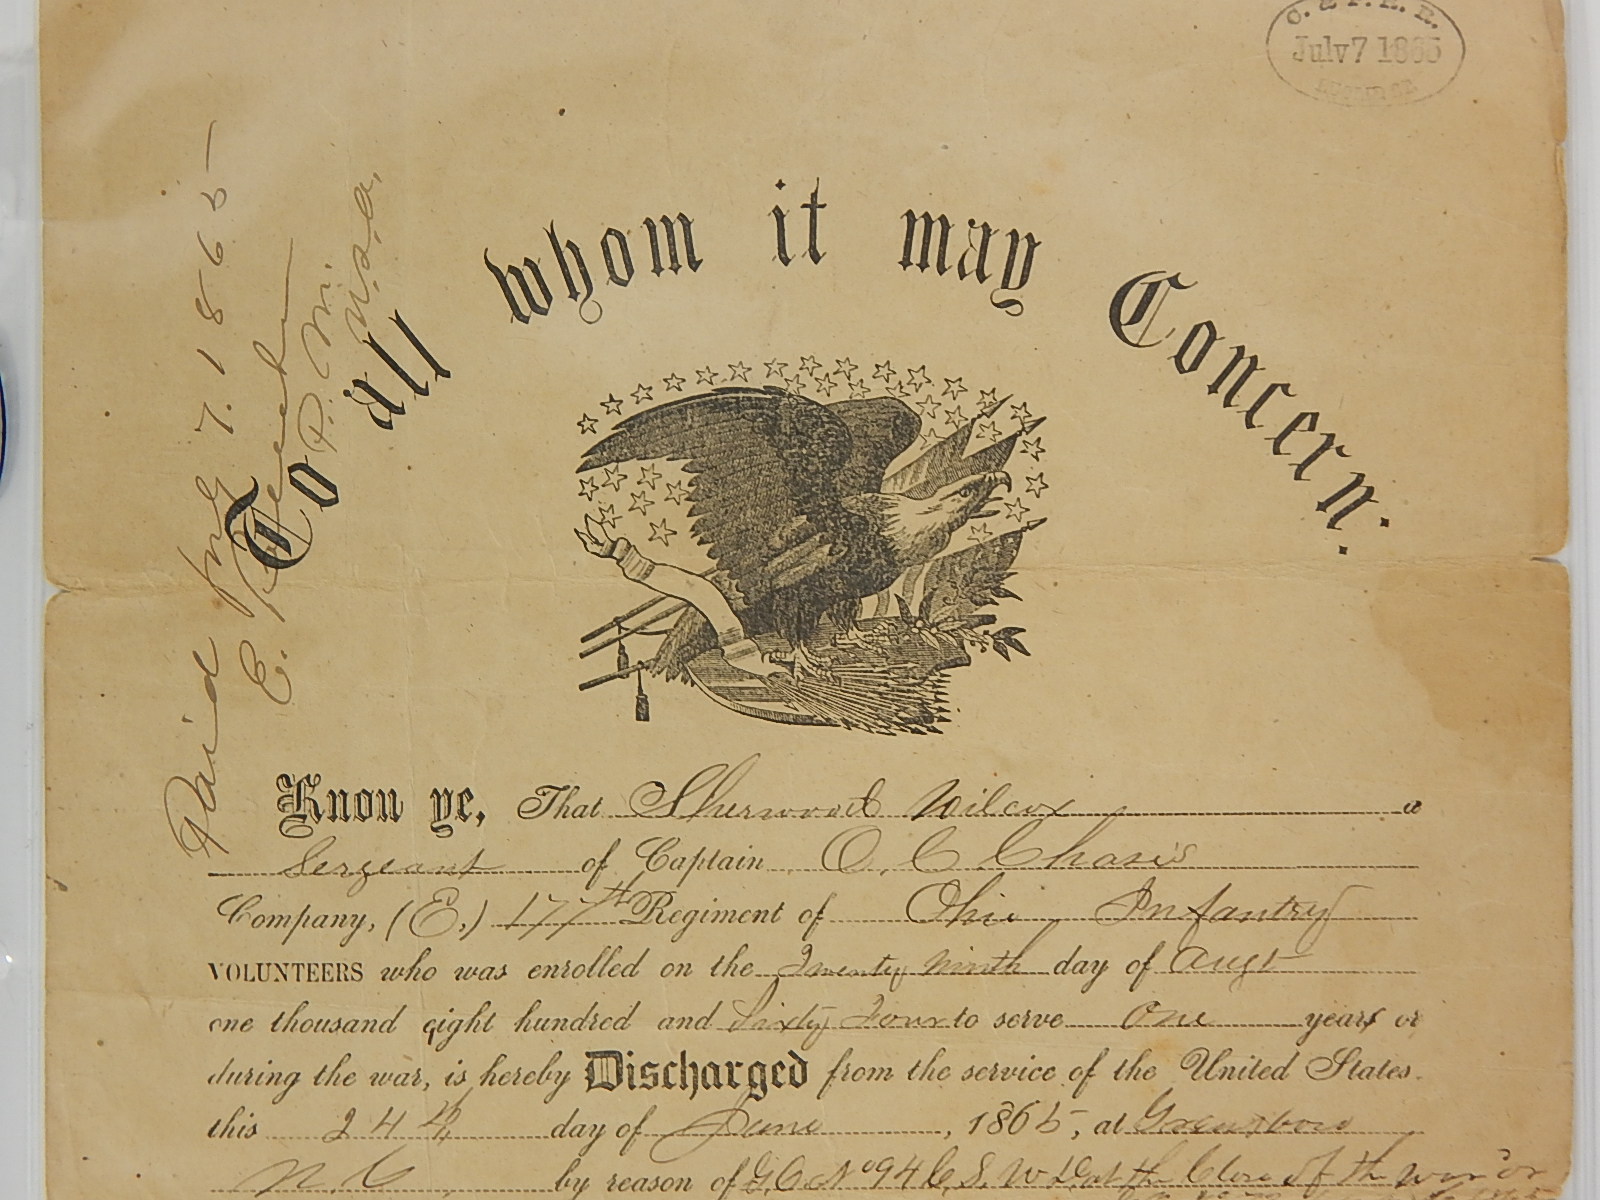 C. & P. R. R.
July 7 1865
Paid July 7. 1865
E.
P. M.
U.S.A.
To all whom it may Concern:
Know ye, That Sherwood Wilcox a
Sergeant of Captain O. C Chase's
Company, (E,) 177th Regiment of Ohio Infantry
VOLUNTEERS who was enrolled on the Twenty ninth day of Augt
one thousand eight hundred and Sixty Four to serve one years or
during the war, is hereby Discharged from the service of the United States.
this 24th day of June, 1865, at Greensboro
N. C by reason of G.O No 94 the Close of the war or